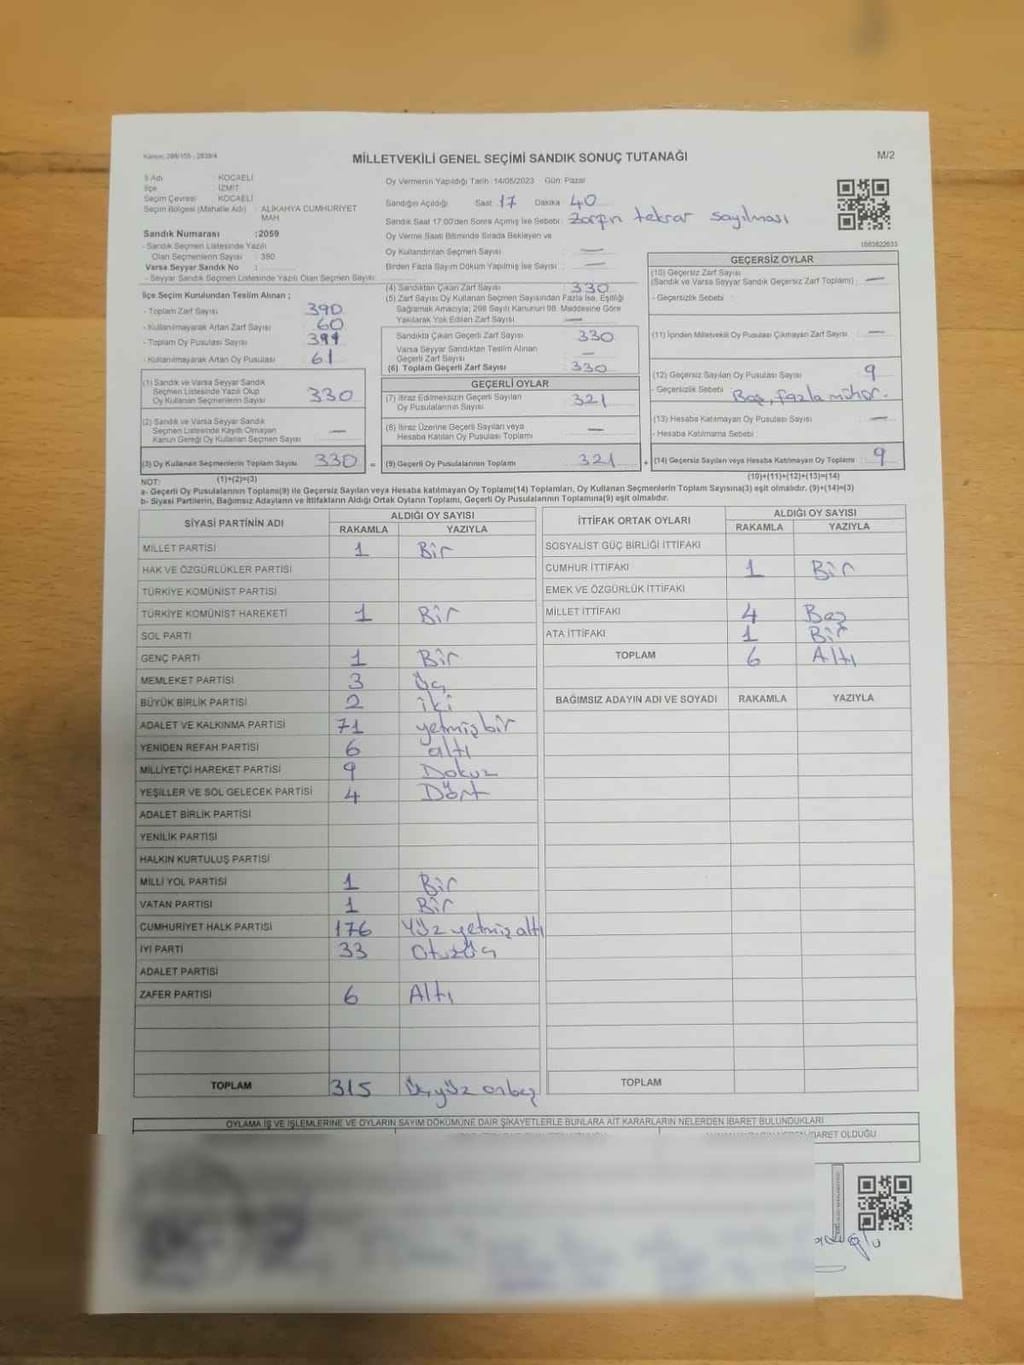 Kanun: 298/105 - 2839/4
MİLLETVEKİLİ GENEL SEÇİMİ SANDIK SONUÇ TUTANAĞI
M/2
İl Adı : KOCAELİ
İlçe : İZMİT
Seçim Çevresi : KOCAELİ
Seçim Bölgesi (Mahalle Adı) : ALİKAHYA CUMHURİYET MAH
Sandık Numarası : 2059
- Sandık Seçmen Listesinde Yazılı
Olan Seçmenlerin Sayısı : 380
Varsa Seyyar Sandık No :
- Seyyar Sandık Seçmen Listesinde Yazılı Olan Seçmen Sayısı:
Oy Vermenin Yapıldığı Tarih: 14/05/2023 Gün: Pazar
Sandığın Açıldığı Saat 17 Dakika 40
Sandık Saat 17:00'den Sonra Açılmış İse Sebebi: Zarfın tekrar sayılması
Oy Verme Saati Bitiminde Sırada Bekleyen ve
Oy Kullandırılan Seçmen Sayısı —
Birden Fazla Sayım Döküm Yapılmış İse Sayısı —
İlçe Seçim Kurulundan Teslim Alınan ;
- Toplam Zarf Sayısı 390
- Kullanılmayarak Artan Zarf Sayısı 60
- Toplam Oy Pusulası Sayısı 391
- Kullanılmayarak Artan Oy Pusulası 61
(1) Sandık ve Varsa Seyyar Sandık
Seçmen Listesinde Yazılı Olup
Oy Kullanan Seçmenlerin Sayısı 330
(2) Sandık ve Varsa Seyyar Sandık
Seçmen Listesinde Kayıtlı Olmayan
Kanun Gereği Oy Kullanan Seçmen Sayısı —
(3) Oy Kullanan Seçmenlerin Toplam Sayısı 330
(4) Sandıktan Çıkan Zarf Sayısı 330
(5) Zarf Sayısı Oy Kullanan Seçmen Sayısından Fazla İse, Eşitliği
Sağlamak Amacıyla; 298 Sayılı Kanunun 98. Maddesine Göre
Yakılarak Yok Edilen Zarf Sayısı —
Sandıkta Çıkan Geçerli Zarf Sayısı 330
Varsa Seyyar Sandıktan Teslim Alınan
Geçerli Zarf Sayısı —
(6) Toplam Geçerli Zarf Sayısı 330
GEÇERLİ OYLAR
(7) İtiraz Edilmeksizin Geçerli Sayılan
Oy Pusulalarının Sayısı 321
(8) İtiraz Üzerine Geçerli Sayılan veya
Hesaba Katılan Oy Pusulası Toplamı —
= (9) Geçerli Oy Pusulalarının Toplamı 321
1083822633
GEÇERSİZ OYLAR
(10) Geçersiz Zarf Sayısı
(Sandık ve Varsa Seyyar Sandık Geçersiz Zarf Toplamı) —
- Geçersizlik Sebebi
(11) İçinden Milletvekili Oy Pusulası Çıkmayan Zarf Sayısı —
(12) Geçersiz Sayılan Oy Pusulası Sayısı 9
- Geçersizlik Sebebi Boş, fazla mühür.
(13) Hesaba Katılmayan Oy Pusulası Sayısı —
- Hesaba Katılmama Sebebi
+ (14) Geçersiz Sayılan veya Hesaba Katılmayan Oy Toplamı 9
NOT: (1)+(2)=(3)
(10)+(11)+(12)+(13)=(14)
a- Geçerli Oy Pusulalarının Toplamı(9) ile Geçersiz Sayılan veya Hesaba katılmayan Oy Toplamı(14) Toplamları, Oy Kullanan Seçmenlerin Toplam Sayısına(3) eşit olmalıdır. (9)+(14)=(3)
b- Siyasi Partilerin, Bağımsız Adayların ve İttifakların Aldığı Ortak Oyların Toplamı, Geçerli Oy Pusulalarının Toplamına(9) eşit olmalıdır.
SİYASİ PARTİNİN ADI ALDIĞI OY SAYISI
RAKAMLA YAZIYLA
MİLLET PARTİSİ 1 Bir
HAK VE ÖZGÜRLÜKLER PARTİSİ
TÜRKİYE KOMÜNİST PARTİSİ
TÜRKİYE KOMÜNİST HAREKETİ 1 Bir
SOL PARTİ
GENÇ PARTİ 1 Bir
MEMLEKET PARTİSİ 3 Üç
BÜYÜK BİRLİK PARTİSİ 2 iki
ADALET VE KALKINMA PARTİSİ 71 yetmişbir
YENİDEN REFAH PARTİSİ 6 altı
MİLLİYETÇİ HAREKET PARTİSİ 9 Dokuz
YEŞİLLER VE SOL GELECEK PARTİSİ 4 Dört
ADALET BİRLİK PARTİSİ
YENİLİK PARTİSİ
HALKIN KURTULUŞ PARTİSİ
MİLLİ YOL PARTİSİ 1 Bir
VATAN PARTİSİ 1 Bir
CUMHURİYET HALK PARTİSİ 176 Yüz yetmiş altı
İYİ PARTİ 33 Otuzüç
ADALET PARTİSİ
ZAFER PARTİSİ 6 Altı
TOPLAM 315 Üçyüz onbeş
İTTİFAK ORTAK OYLARI ALDIĞI OY SAYISI
RAKAMLA YAZIYLA
SOSYALİST GÜÇ BİRLİĞİ İTTİFAKI
CUMHUR İTTİFAKI 1 Bir
EMEK VE ÖZGÜRLÜK İTTİFAKI
MİLLET İTTİFAKI 4 Beş
ATA İTTİFAKI 1 Bir
TOPLAM 6 Altı
BAĞIMSIZ ADAYIN ADI VE SOYADI RAKAMLA YAZIYLA
TOPLAM
OYLAMA İŞ VE İŞLEMLERİNE VE OYLARIN SAYIM DÖKÜMÜNE DAİR ŞİKAYETLERLE BUNLARA AİT KARARLARIN NELERDEN İBARET BULUNDUKLARI
İBARET OLDUĞU